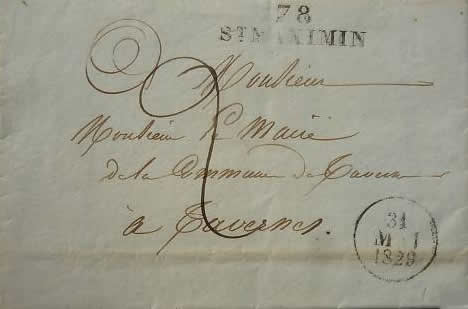 78
ST MAXIMIN
2
Monsieur
Monsieur le Maire
de la Commune de Tavernes
à Tavernes.
31
MAI
1829